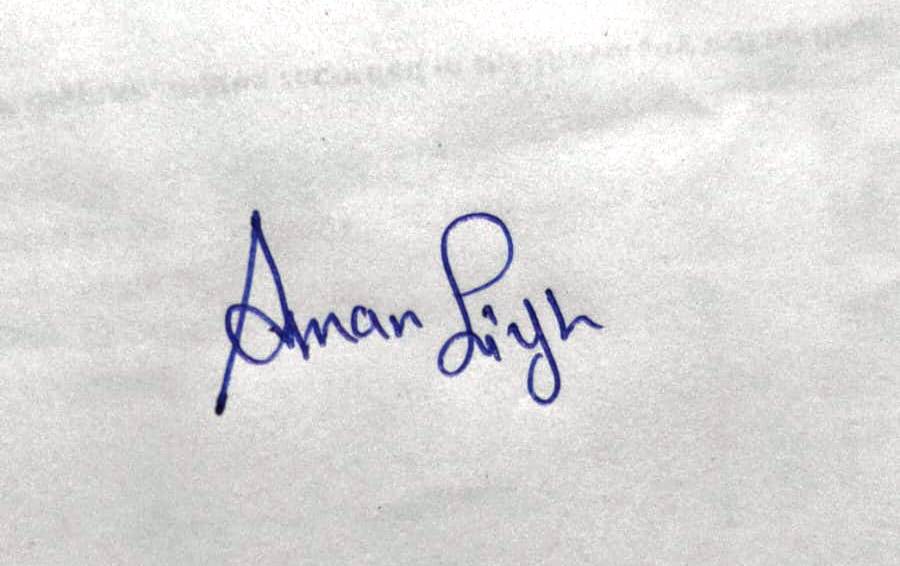 Aman Singh